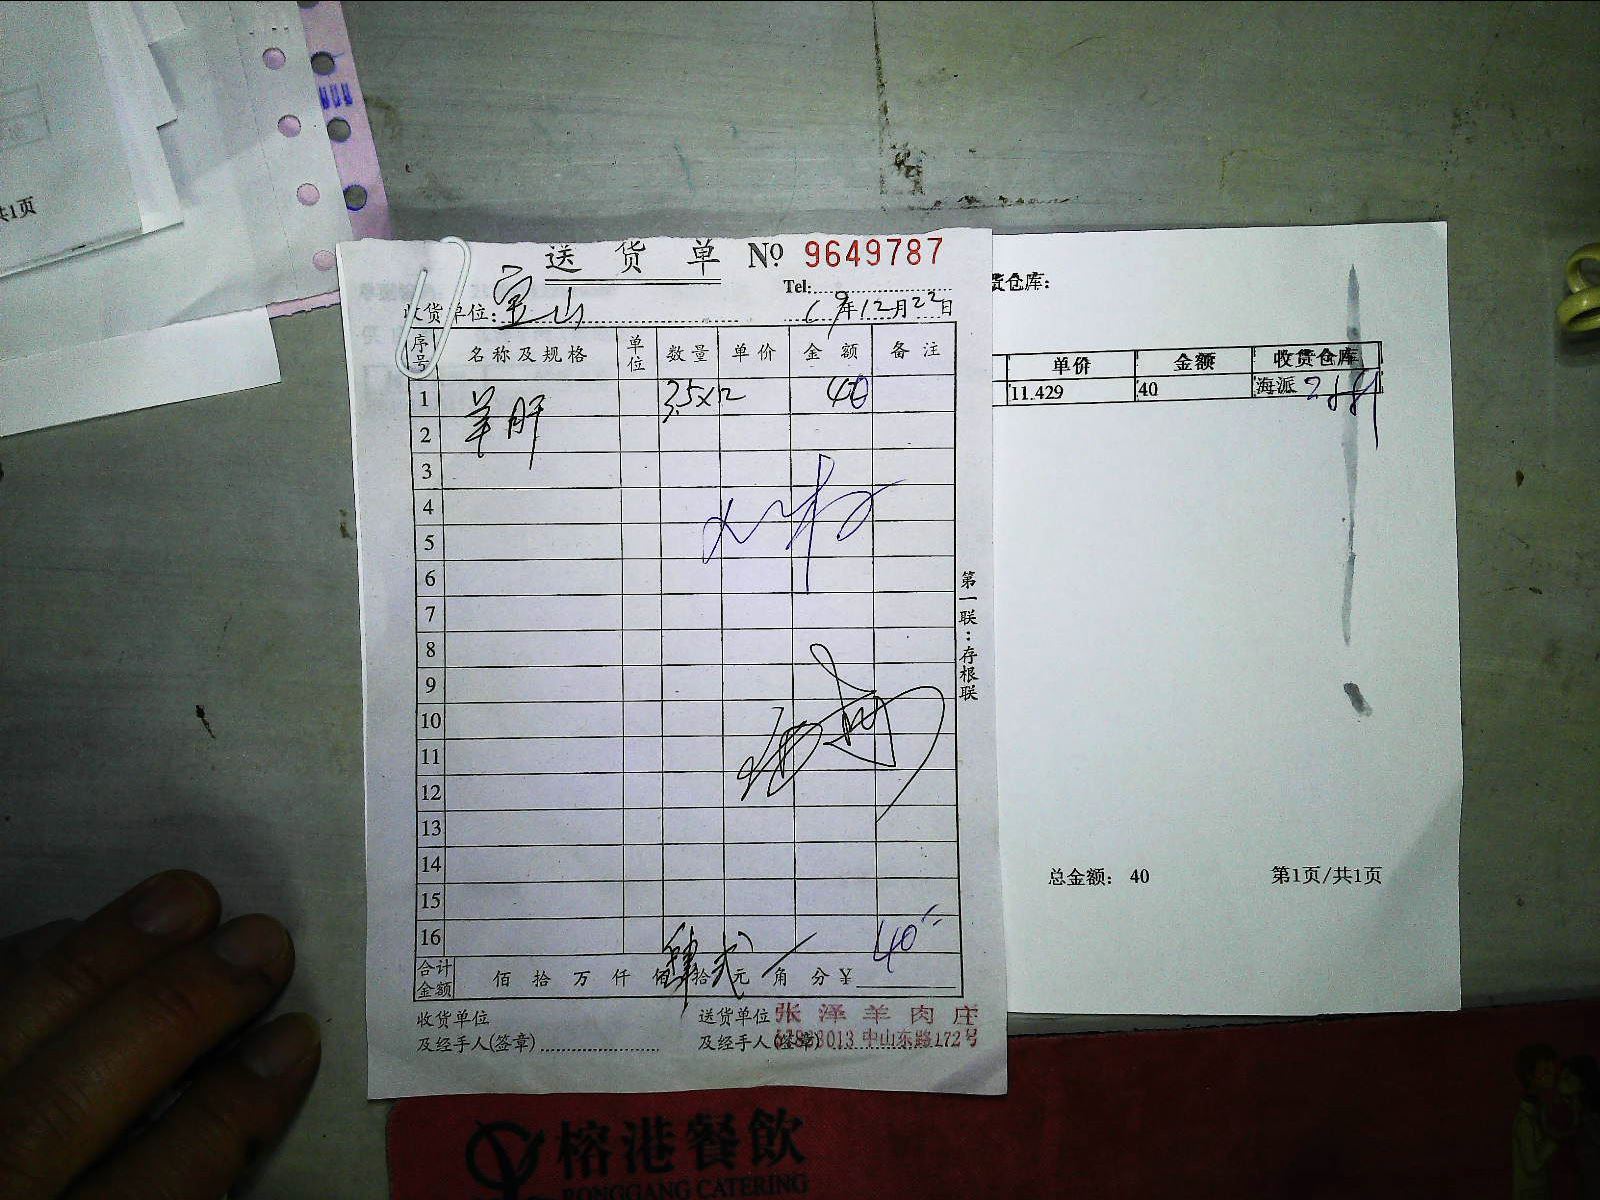 共1页
送货单 № 9649787
Tel:
收货单位: 宝山 19年12月22日
序号 名称及规格 单位 数量 单价 金额 备注
1 羊肝 3.5x12 40
2
3
4
5
6
7
8
9
10
11
12
13
14
15
16
合计金额 佰拾万仟佰拾元角分¥ 40
收货单位 送货单位 张泽羊肉庄
及经手人(签章) 及经手人(签章) 中山东路172号
第一联:存根联
货仓库:
单价 金额 收货仓库
11.429 40 海派
总金额: 40 第1页/共1页
榕港餐飲
RONGGANG CATERING